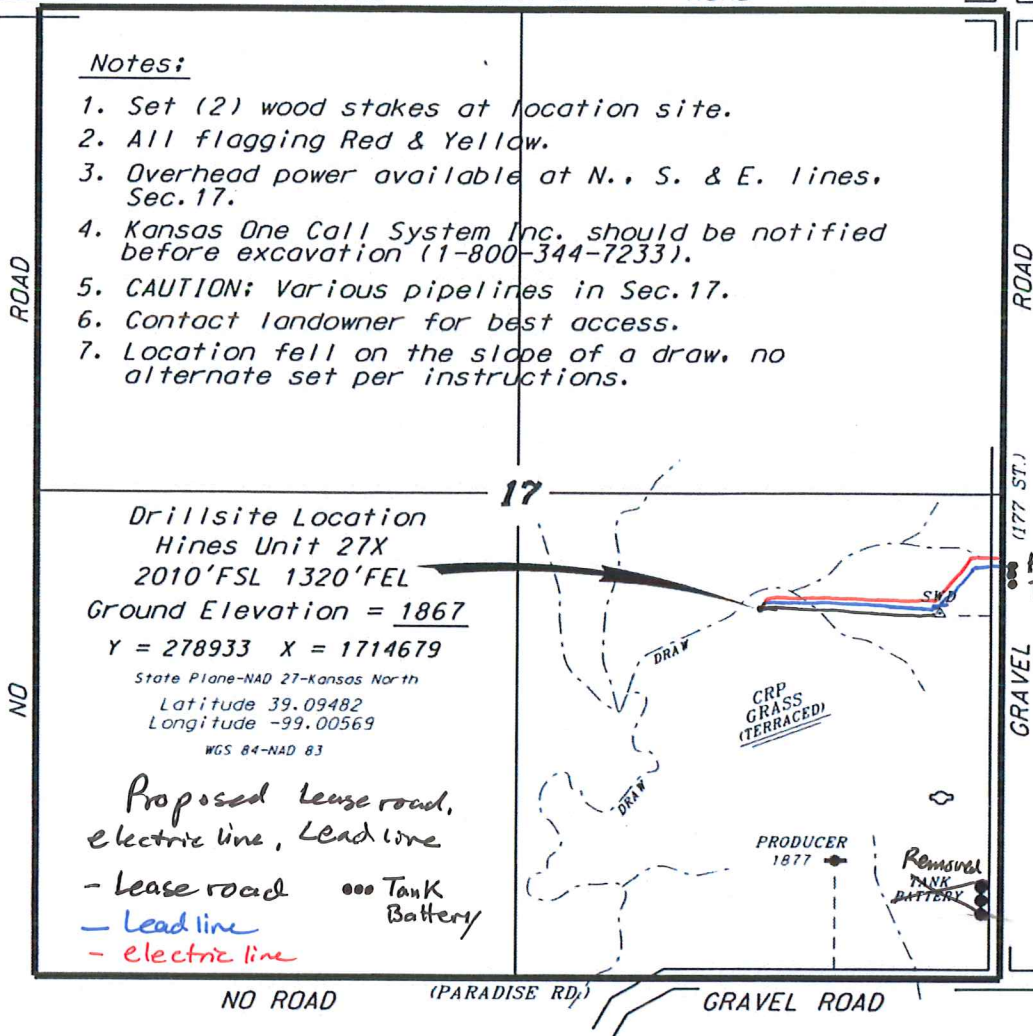 Notes:
1. Set (2) wood stakes at location site.
2. All flagging Red & Yellow.
3. Overhead power available at N., S. & E. lines,
Sec. 17.
4. Kansas One Call System Inc. should be notified
before excavation (1-800-344-7233).
5. CAUTION: Various pipelines in Sec. 17.
6. Contact landowner for best access.
7. Location fell on the slope of a draw, no
alternate set per instructions.
ROAD
ROAD
17
(177 ST.)
Drillsite Location
Hines Unit 27X
2010'FSL 1320'FEL
Ground Elevation = 1867
Y = 278933 X = 1714679
State Plane-NAD 27-Kansas North
Latitude 39.09482
Longitude -99.00569
WGS 84-NAD 83
SWD
DRAW
CRP
GRASS
(TERRACED)
DRAW
NO
GRAVEL
Proposed Lease road,
electric line, Lead line
- Lease road
Tank
Battery
- Lead line
- electric line
PRODUCER
1877
Removed
TANK
BATTERY
NO ROAD
(PARADISE RD.)
GRAVEL ROAD